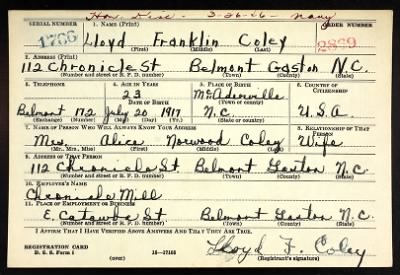 Hon Disc. - 3-26-46 - Navy
SERIAL NUMBER 1. NAME (Print) ORDER NUMBER
1766 Lloyd Franklin Coley 2869
(First) (Middle) (Last)
2. ADDRESS (Print)
112 Chronicle St Belmont Gaston N.C.
(Number and street or R. F. D. number) (Town) (County) (State)
3. TELEPHONE 4. AGE IN YEARS 5. PLACE OF BIRTH 6. COUNTRY OF CITIZENSHIP
23 McAdenville
DATE OF BIRTH (Town or county)
Belmont 172 July 20 1917 N.C. U.S.A
(Exchange) (Number) (Mo.) (Day) (Yr.) (State or country)
7. NAME OF PERSON WHO WILL ALWAYS KNOW YOUR ADDRESS 8. RELATIONSHIP OF THAT PERSON
Mrs. Alice Norwood Coley Wife
(Mr., Mrs., Miss) (First) (Middle) (Last)
9. ADDRESS OF THAT PERSON
112 Chronicle St. Belmont Gaston N.C.
(Number and street or R. F. D. number) (Town) (County) (State)
10. EMPLOYER'S NAME
Chronicle Mill
11. PLACE OF EMPLOYMENT OR BUSINESS
E. Catawba St Belmont Gaston N.C.
(Number and street or R. F. D. number) (Town) (County) (State)
I AFFIRM THAT I HAVE VERIFIED ABOVE ANSWERS AND THAT THEY ARE TRUE.
REGISTRATION CARD
D. S. S. Form 1 16-17105 Lloyd F. Coley
(Registrant's signature)